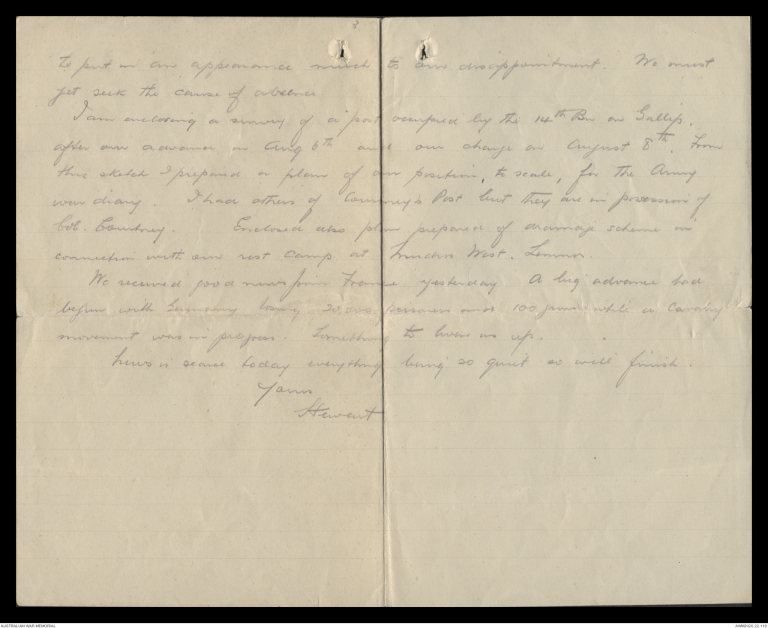 to put in an appearance much to our disappointment. We must
yet seek the cause of absence
I am enclosing a survey of a post occupied by the 14th Bn on Gallip.
after our advance on Aug 6th and our charge on August 8th. From
this sketch I prepared a plan of our position, to scale, for the Army
war diary. I had others of Courtney's Post but they are in possession of
Col. Courtney. Enclosed also plan prepared of drainage scheme in
connection with our rest camp at Mudros West. Lemnos.
We received good news from France yesterday A big advance had
begun with Germany losing 20,000 prisoners and 100 guns while a Cavalry
movement was in progress. Something to liven us up.
News is scarce today everything being so quiet so will finish.
Yours
Stewart
AUSTRALIAN WAR MEMORIAL